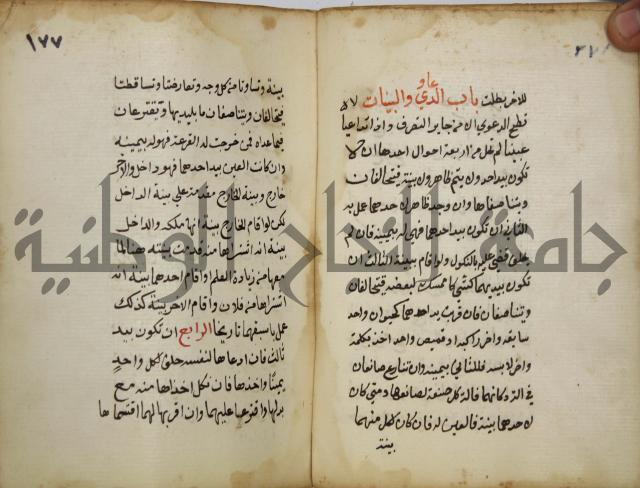 ٢٧٨
للاخر بطلت باب الدعاوي والبينات لا
تصح الدعوى الا من جايز التصرف واذا تداعيا
عينا لم تخل من اربعة احوال احدها ان لا
تكون بيد احد ولا ثم ظاهر ولا بينة فيتحالفان
ويتناصفاها وان وجد ظاهر لاحدهما عمل به
الثاني ان تكون بيد احدهما فهي له بيمينه فان لم
يحلف قضي عليه بالنكول ولو اقام بينة الثالث ان
تكون بيديهما كشي كل ممسك لبعضه فيتحالفان
ويتناصفان فان قويت يد احدهما كحيوان واحد
سايقه واخر راكبه او قميص واحد اخذ بكمه
واخر لابسه فللثاني بيمينه وان تنازع صانعان
في الة دكانهما فالة كل صنعة لصانعها ومتى كان
لاحدهما بينة فالعين له فان كان لكل منهما
بينة
١٧٧
بينة وتساوتا من كل وجه وتعارضتا وتساقطتا
فيتحالفان ويتناصفان ما بايديهما ويقترعان
فيما عداه فمن خرجت له القرعة فهو له بيمينه
وان كانت العين بيد احدهما فهو داخل والاخر
خارج وبينة الخارج مقدمة على بينة الداخل
لكن لو اقام الخارج بينة انها ملكه والداخل
بينة انه اشتراها منه قدمت بينته هنا لما
معها من زيادة العلم او اقام احدهما بينة انه
اشتراها من فلان واقام الاخر بينة كذلك
عمل باسبقهما تاريخا الرابع ان تكون بيد
ثالث فان ادعاها لنفسه حلف لكل واحد
يمينا واخذها فان نكل اخذاها منه مع
بدلها واقترعا عليهما وان اقر بها لهما اقتسماها
جامعة النجاح الوطنية